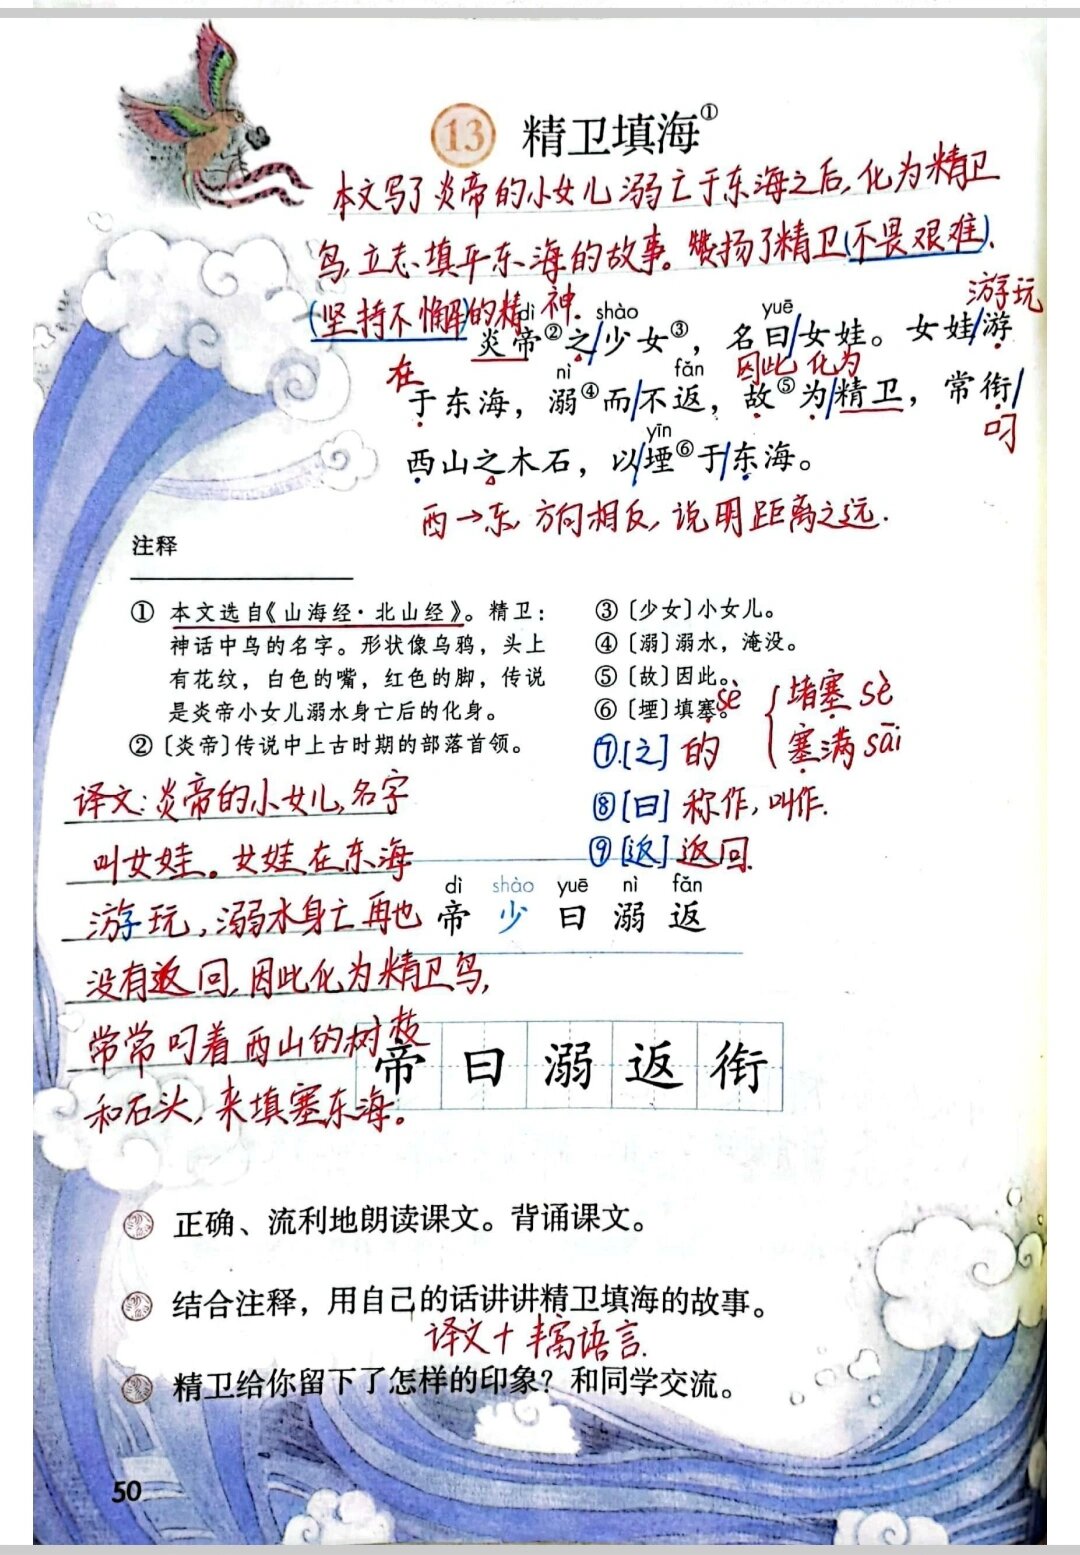 13 精卫填海①
本文写了炎帝的小女儿溺亡于东海之后,化为精卫
鸟,立志填平东海的故事。赞扬了精卫(不畏艰难)、
(坚持不懈)的精神.
dì shào yuē 游玩
炎帝②之/少女③，名曰/女娃。女娃/游
在 nì fǎn 因此 化为
于东海，溺④而/不返，故⑤为/精卫，常衔/
yīn 叼
西山之木石，以/堙⑥于/东海。
西→东,方向相反,说明距离之远.
注释
① 本文选自《山海经·北山经》。精卫：
神话中鸟的名字。形状像乌鸦，头上
有花纹，白色的嘴，红色的脚，传说
是炎帝小女儿溺水身亡后的化身。
②〔炎帝〕传说中上古时期的部落首领。
③〔少女〕小女儿。
④〔溺〕溺水，淹没。
⑤〔故〕因此。
⑥〔堙〕填塞。sè
堵塞 sè
塞满 sāi
⑦.[之] 的
⑧[曰] 称作,叫作.
⑨[返] 返回.
译文:炎帝的小女儿,名字
叫女娃。女娃在东海
游玩,溺水身亡再也
没有返回,因此化为精卫鸟,
常常叼着西山的树枝
和石头,来填塞东海。
dì shào yuē nì fǎn
帝 少 曰 溺 返
帝 曰 溺 返 衔
正确、流利地朗读课文。背诵课文。
结合注释，用自己的话讲讲精卫填海的故事。
译文+丰富语言.
精卫给你留下了怎样的印象？和同学交流。
50